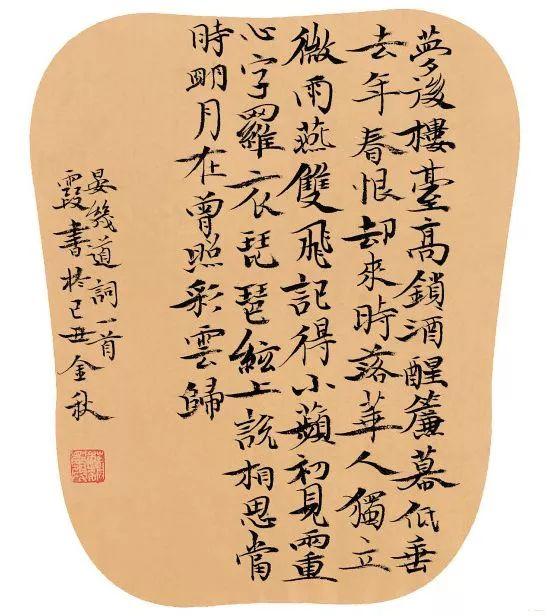 夢後樓臺高鎖酒醒簾幕低垂
去年春恨却來時落華人獨立
微雨燕雙飛記得小蘋初見兩重
心字羅衣琵琶絃上說相思當
時明月在曾照彩雲歸
晏幾道詞一首
霞書於己丑金秋